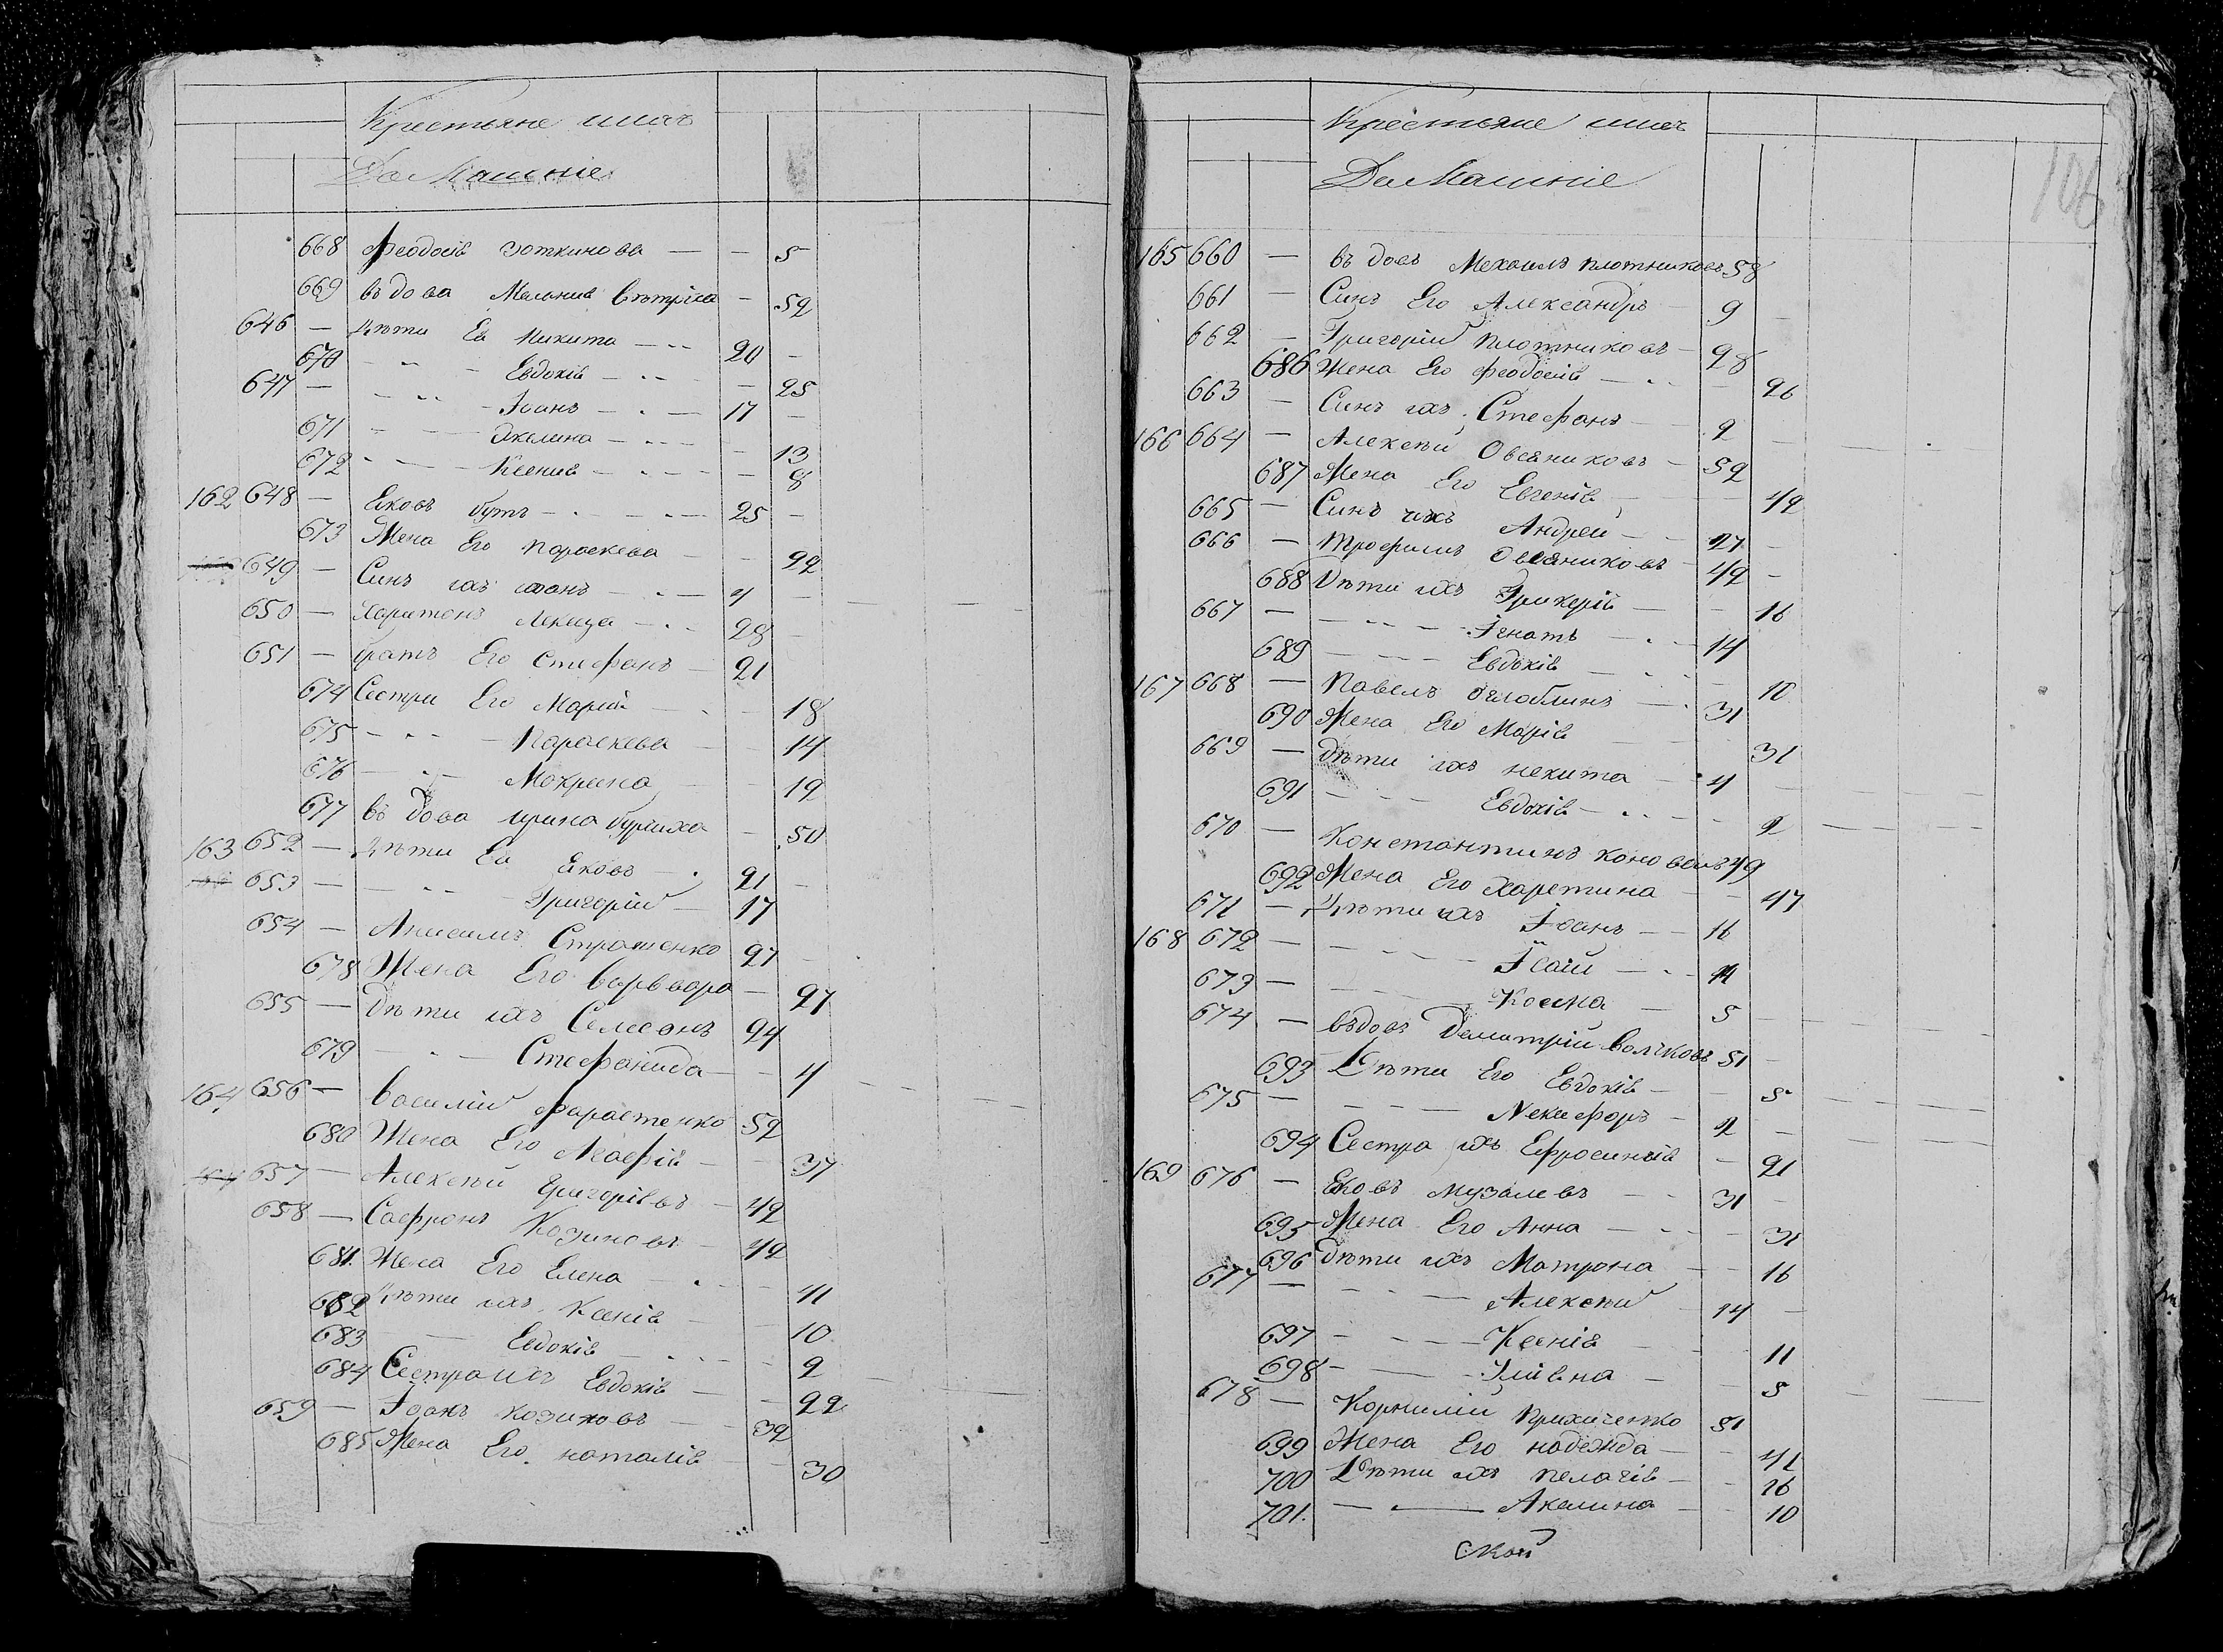 Крестьяне ихъ
До Машніе
668 Феодосія зоткинова — — 5
669 въдова Мелания вътріха — 52
646 — Дѣти Ея Никита — 20 —
670 — Евдокія — — 25
647 — Іоанъ — 17 —
671 — Якелина — — 13
672 — Ксения — — 8
162 648 — Яковъ бутъ — 25 —
673 Жена Его параскева — — 22
649 — Синъ ихъ иоанъ — 4 —
650 — Харитонъ Лекица — 28 —
651 — братъ Его Стефанъ — 21
674 Сестри Его Марія — — 18
675 — Параскева — — 14
676 — Мокрина — — 12
677 въдова ирина буриха — 50
163 652 — Дѣти Ея Яковъ — 21 —
653 — Григорій — 17
654 — Анисимъ Страшенко 27 —
678 Жена Его варвара — 27
655 — Дѣти ихъ Симеонъ 24
679 — Стефанида — — 4
164 656 — василій Фарастенко 52
680 Жена Его Агафія — — 37
657 — Алексѣй Григоріевъ — 42
658 — Сафронъ Козиновъ — 42
681. Жена Его Елена — — 41
682 Дѣти ихъ Ксенія — — 10
683 — Евдокія — — 2
684 Сестра ихъ Евдокія — — 22
659 — Іоанъ козиновъ — 32
685 Жена Его наталія — — 30
Крестьяне ихъ
До Машніе
106
165 660 — въдовъ Мехаилъ плотниковъ 58
661 — Синъ Его Александръ — 9 —
662 — Григорій плотниковъ — 28
686 Жена Его Феодосія — — 26
663 — Синъ ихъ Стефанъ — 2 —
166 664 — Алексѣй Овсяниковъ — 52
687 Жена Его Евгенія — — 42
665 — Синъ ихъ Андрей — 27 —
666 — Трофимъ Овсяниковъ — 42 —
688 Дѣти ихъ Гликерія — — 16
667 — Ігнатъ — 14
689 — Евдокія — — 10
167 668 — Павелъ оглоблинъ — 31
690 Жена Его Марія — — 31
669 — Дѣти ихъ некита — 4 —
691 — Евдокія — — 2
670 — Констонтинъ коновалъ 49
692 Жена Его Харетина — — 47
671 — Дѣти ихъ Іоанъ — 16
168 672 — Ісай — 11
673 — Косма — 5
674 — въдовъ Демитрій волчковъ 51 —
693 Дѣти Его Евдокія — — 5
675 — Некифоръ — 2 —
694 Сестра ихъ Ефросинія — 21
169 676 — Яковъ музалевъ — 31 —
695 Жена Его Анна — — 31
696 Дѣти ихъ Матрона — — 16
677 — Алексѣй — 14 —
697 — Ксенія — — 11
698 — Уліяна — — 5
678 — Корнилій Прихиченко 51
699 Жена Его надежда — — 41
700 Дѣти ихъ пелагія — — 16
701. — Акелина — — 10
Ской